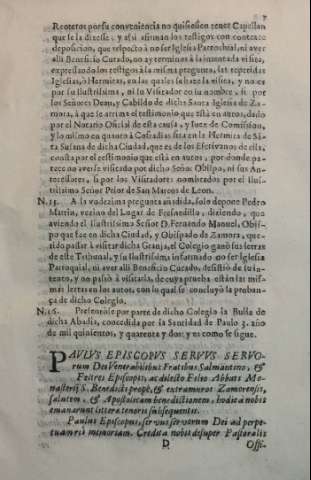 7
Retores por su conveniencia no quisiessen tener Capellan
que se la dixesse, y assi afirman los testigos con contexte
deposicion, que respecto à no ser Iglesia Parrochial, ni aver
alli Beneficio Curado, no ay terminos à la intentada visita,
expressando los testigos à la misma pregunta, las repetidas
Iglesias, ò Hermitas, en las quales falta la visita, y no es
por su Ilustrissima, ni su Visitador en su nombre, si por
los Señores Dean, y Cabildo de dicha Santa Iglesia de Za-
mora, à que se arrima el testimonio que està en autos, dado
por el Notario Oficial de esta causa, y Juez de Comission,
y lo mismo en quanto à Cofradias sita en la Hermita de Sã-
ta Susana de dicha Ciudad, que es de los Efetivanos de ella,
consta por el testimonio que està en autos, por donde pa-
rece no averse visitado por dicho Señor Obispo, ni sus An-
tecessores, si por los Visitadores nombrados por el Ilus-
trissimo Señor Prior de San Marcos de Leon.
N.15. A la vodezima pregunta añadida, solo depone Pedro
Martin, vezino del Lugar de Fresnedillo, diziendo, que
aviendo el Ilustrissimo Señor D. Fernando Manuel, Obis-
po que fue en dicha Ciudad, y Obispado de Zamora, que-
rido passar à visitar dicha Granja, el Colegio ganò sus letras
de este Tribunal, y su Ilustrissima, informado no ser Iglesia
Parroquial, ni aver alli Beneficio Curado, desistiò de su in-
tento, y no passò à visitarla, de cuya prueba estàn las mis-
mas letras en los autos, con lo qual se concluyò la proban-
ça de dicho Colegio.
N.16. Presentòse por parte de dicho Colegio la Bulla de
dicha Abadia, concedida por la Santidad de Paulo 3. año
de mil quinientos, y quarenta y dos, y es como se sigue.
PAVLVS EPISCOPVS SERVVS SERVO-
rum Dei Venerabilibus Fratribus Salmantino, &
Feltren Episcopis, ac dilecto Filio Abbati Mo-
nasterij S. Benedicti propè, & extra muros Zamorensis,
salutem, & Apostolicam benedictionem, hodie à nobis
emanarunt litteræ tenoris subsequentis.
Paulus Episcopus, servus servorum Dei ad perpe-
tuam rei memoriam. Credita nobis desuper Pastoralis
D Offi-